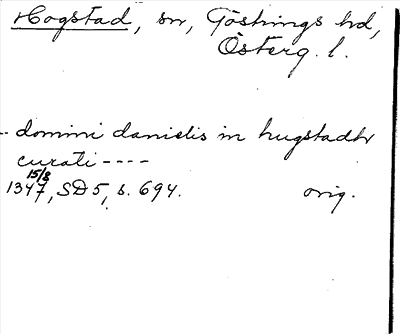 Hogstad, sn, Göstrings hd,
Österg. l.
-- domini danielis in hugstadhr
curati ----
15/8
1347, SD 5, s. 694. orig.